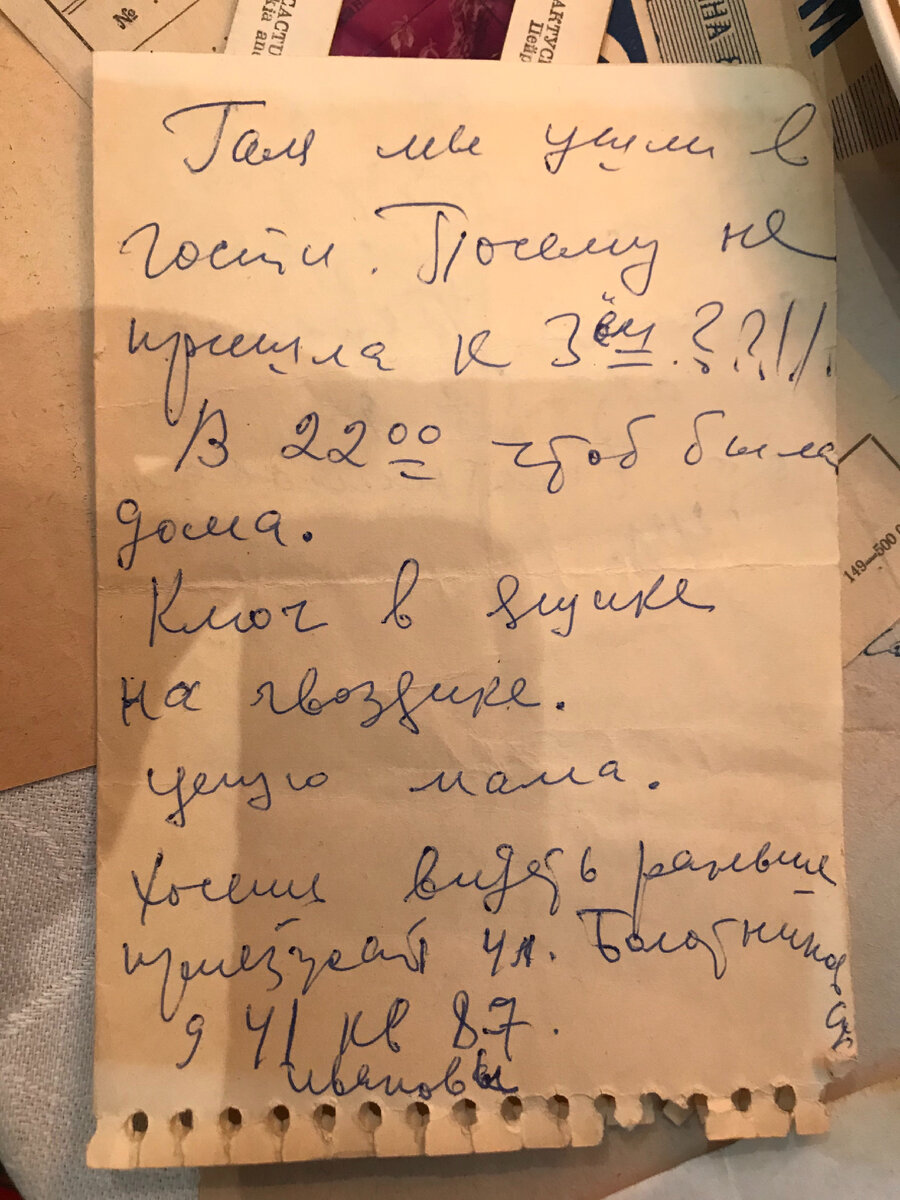 №
САСТИ
kia an
АРТУС
Пейр
НА
М
Галя мы ушли в
гости. Почему не
пришла к 3ём.???!!!
В 22 00 чтоб была
дома.
Ключ в ящике
на гвоздике.
целую мама.
Хочешь видеть раньше
приезжай ул. Болотниковская
д 41 кв 87.
Ивановы
149—500